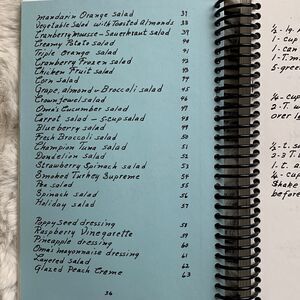 Mandarin Orange salad 37
Vegetable Salad with Toasted Almonds 38
Cranberry Mousse - Sauerkraut salad 39
Creamy Potato salad 40
Triple Orange salad 41
Cranberry Frozen salad 42
Chicken Fruit salad 43
Corn salad 44
Grape, almond & Broccoli salad 45
Crown Jewel salad 46
Oma's Cucumber salad 47
Carrot salad - 5-cup salad 48
Blueberry salad 49
Fresh Broccoli salad 50
Champion Tuna salad 51
Dandelion salad 52
Strawberry Spinach salad 53
Smoked Turkey Supreme 54
Pea salad 55
Spinach salad 56
Holiday salad 57
Poppy Seed dressing 58
Raspberry Vinegarette 59
Pineapple dressing 60
Oma's mayonnaise dressing 61
Layered Salad 62
Glazed Peach Creme 63
36
1 - cup
1 - T. m
5 - green
¼ - cup
2 - T.
over
½ - t.
2 - T.
1 - t.
¼ - cup
Shake
before